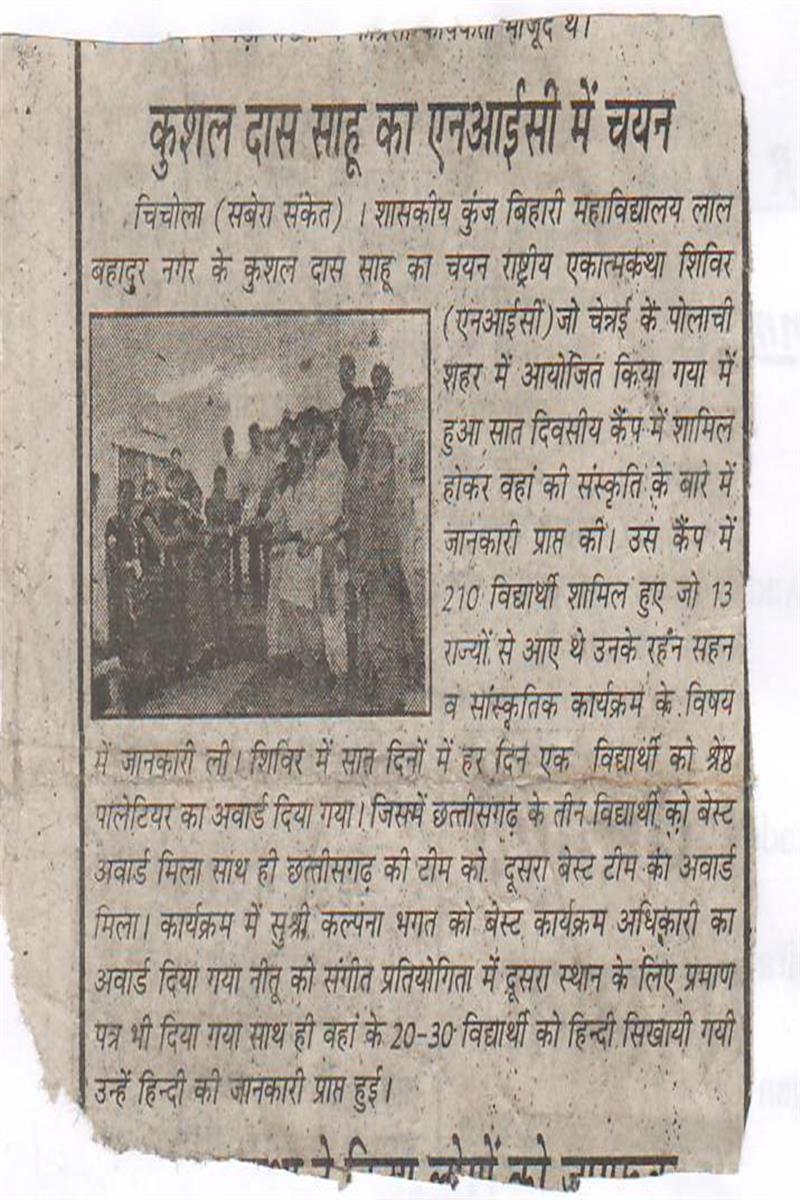 मौजूद थे।
कुशल दास साहू का एनआईसी में चयन
चिचोला (सबेरा संकेत) । शासकीय कुंज बिहारी महाविद्यालय लाल
बहादुर नगर के कुशल दास साहू का चयन राष्ट्रीय एकात्मकथा शिविर
(एनआईसी)जो चेन्नई कें पोलाची
शहर में आयोजित किया गया में
हुआ सात दिवसीय कैंप में शामिल
होकर वहां की संस्कृति के बारे में
जानकारी प्राप्त की। उस कैंप में
210 विद्यार्थी शामिल हुए जो 13
राज्यों से आए थे उनके रहन सहन
व सांस्कृतिक कार्यक्रम के विषय
में जानकारी ली। शिविर में सात दिनों में हर दिन एक विद्यार्थी को श्रेष्ठ
पालेटियर का अवार्ड दिया गया। जिसमें छत्तीसगढ़ के तीन विद्यार्थी को बेस्ट
अवार्ड मिला साथ ही छत्तीसगढ़ की टीम को दूसरा बेस्ट टीम का अवार्ड
मिला। कार्यक्रम में सुश्री कल्पना भगत को बेस्ट कार्यक्रम अधिकारी का
अवार्ड दिया गया नीतू को संगीत प्रतियोगिता में दूसरा स्थान के लिए प्रमाण
पत्र भी दिया गया साथ ही वहां के 20-30 विद्यार्थी को हिन्दी सिखायी गयी
उन्हें हिन्दी की जानकारी प्राप्त हुई।